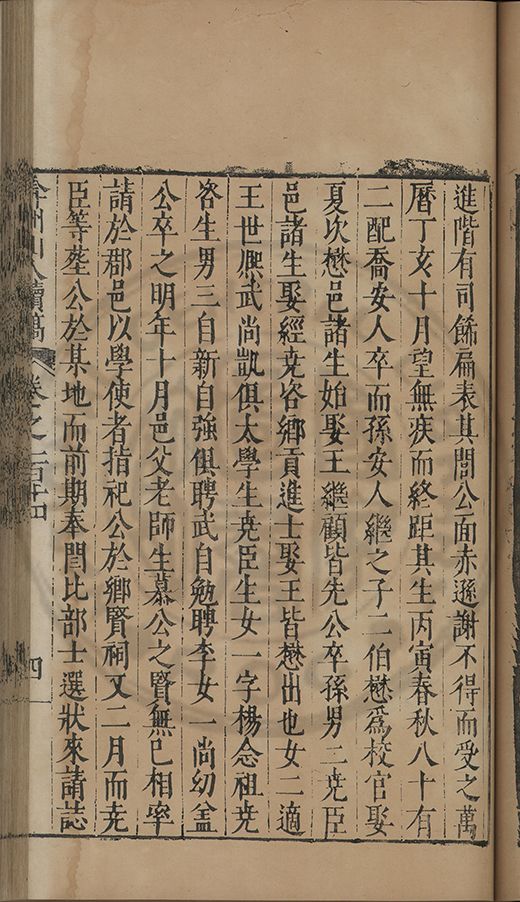 進階有司餙扁表其閭公面赤遜謝不得而受之萬
曆丁亥十月望無疾而終距其生丙寅春秋八十有
二配喬安人卒而孫安人繼之子二伯懋爲校官娶
夏次懋邑諸生始娶王繼顧皆先公卒孫男二尭臣
邑諸生娶經尭咨鄉貢進士娶王皆懋出也女二適
王世熈武尚凱俱太學生尭臣生女一字楊念祖尭
咨生男三自新自強俱聘武自勉聘李女一尚幼盖
公卒之明年十月邑父老師生慕公之賢無已相率
請於郡邑以學使者指祀公於鄉賢祠又二月而尭
臣等塟公於某地而前期奉閆比部士選狀來請誌
弇州山人續稿 卷之一百十四 四